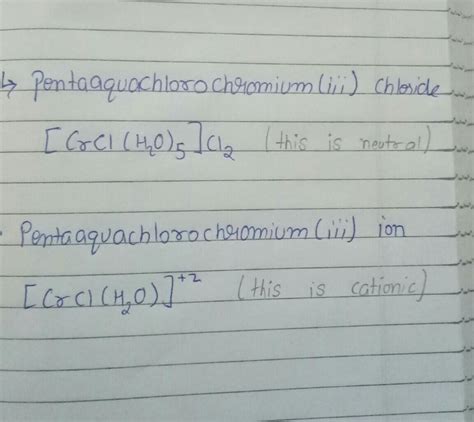 ↳ Pentaaquachlorochromium(iii) chloride
[CrCl(H₂O)₅]Cl₂ (this is neutral)
· Pentaaquachlorochromium(iii) ion
[CrCl(H₂O)]⁺² (this is cationic)